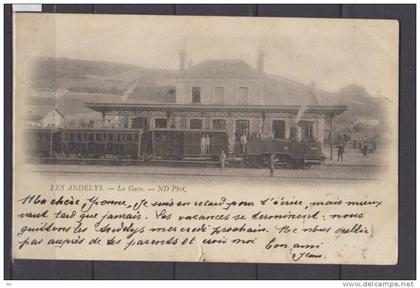 LES ANDELYS. — La Gare. — ND Phot.
Ma chère Yvonne, Je suis en retard pour t'écrire, mais mieux
vaut tard que jamais. Les vacances se terminent, nous
quittons les Andelys mercredi prochain. Ne m'oublie
pas auprès de tes parents et crois moi Bon ami
Jean